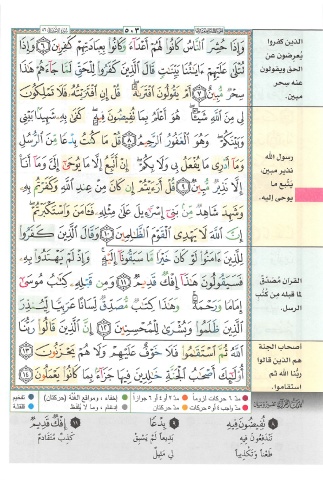 ٥٠٣
وَإِذَا حُشِرَ ٱلنَّاسُ كَانُوا۟ لَهُمْ أَعْدَآءً وَكَانُوا۟ بِعِبَادَتِهِمْ كَٰفِرِينَ ٦ وَإِذَا
تُتْلَىٰ عَلَيْهِمْ ءَايَٰتُنَا بَيِّنَٰتٍ قَالَ ٱلَّذِينَ كَفَرُوا۟ لِلْحَقِّ لَمَّا جَآءَهُمْ هَٰذَا
سِحْرٌ مُّبِينٌ ٧ أَمْ يَقُولُونَ ٱفْتَرَىٰهُ ۖ قُلْ إِنِ ٱفْتَرَيْتُهُۥ فَلَا تَمْلِكُونَ
لِى مِنَ ٱللَّهِ شَيْـًٔا ۖ هُوَ أَعْلَمُ بِمَا تُفِيضُونَ فِيهِ ۖ كَفَىٰ بِهِۦ شَهِيدًۢا بَيْنِى
وَبَيْنَكُمْ ۖ وَهُوَ ٱلْغَفُورُ ٱلرَّحِيمُ ٨ قُلْ مَا كُنتُ بِدْعًا مِّنَ ٱلرُّسُلِ
وَمَآ أَدْرِى مَا يُفْعَلُ بِى وَلَا بِكُمْ ۖ إِنْ أَتَّبِعُ إِلَّا مَا يُوحَىٰٓ إِلَىَّ وَمَآ أَنَا۠
إِلَّا نَذِيرٌ مُّبِينٌ ٩ قُلْ أَرَءَيْتُمْ إِن كَانَ مِنْ عِندِ ٱللَّهِ وَكَفَرْتُم بِهِۦ
وَشَهِدَ شَاهِدٌ مِّنۢ بَنِىٓ إِسْرَٰٓءِيلَ عَلَىٰ مِثْلِهِۦ فَـَٔامَنَ وَٱسْتَكْبَرْتُمْ ۖ
إِنَّ ٱللَّهَ لَا يَهْدِى ٱلْقَوْمَ ٱلظَّٰلِمِينَ ١٠ وَقَالَ ٱلَّذِينَ كَفَرُوا۟
لِلَّذِينَ ءَامَنُوا۟ لَوْ كَانَ خَيْرًا مَّا سَبَقُونَآ إِلَيْهِ ۚ وَإِذْ لَمْ يَهْتَدُوا۟ بِهِۦ
فَسَيَقُولُونَ هَٰذَآ إِفْكٌ قَدِيمٌ ١١ وَمِن قَبْلِهِۦ كِتَٰبُ مُوسَىٰٓ
إِمَامًا وَرَحْمَةً ۚ وَهَٰذَا كِتَٰبٌ مُّصَدِّقٌ لِّسَانًا عَرَبِيًّا لِّيُنذِرَ
ٱلَّذِينَ ظَلَمُوا۟ وَبُشْرَىٰ لِلْمُحْسِنِينَ ١٢ إِنَّ ٱلَّذِينَ قَالُوا۟ رَبُّنَا
ٱللَّهُ ثُمَّ ٱسْتَقَٰمُوا۟ فَلَا خَوْفٌ عَلَيْهِمْ وَلَا هُمْ يَحْزَنُونَ ١٣
أُو۟لَٰٓئِكَ أَصْحَٰبُ ٱلْجَنَّةِ خَٰلِدِينَ فِيهَا جَزَآءًۢ بِمَا كَانُوا۟ يَعْمَلُونَ ١٤
الذين كفروا
يُعرضون عن
الحق ويقولون
عنه سحر
مبين.
رسول الله
نذير مبين،
يتّبع ما
يوحى إليه.
القرآن مُصَدّق
لما قبله من كُتب
الرسل.
أصحاب الجنة
هم الذين قالوا
ربُّنا الله ثم
استقاموا.
مدّ ٦ حركات لزوماً
مدّ ٢ أو ٤ أو ٦ جوازاً
إخفاء، ومواقع الغُنَّة (حركتان)
تفخيم
مدّ واجب ٤ أو ٥ حركات
مدّ حركتان
إدغام، وما لا يُلفظ
قلقلة
٨ تُفِيضُونَ فِيهِ
تندفعون فيه
طعناً وتكذيباً
٩ بِدْعًا
بديعاً لم يسبق
لي مثيل
١١ إِفْكٌ قَدِيمٌ
كذب متقادم